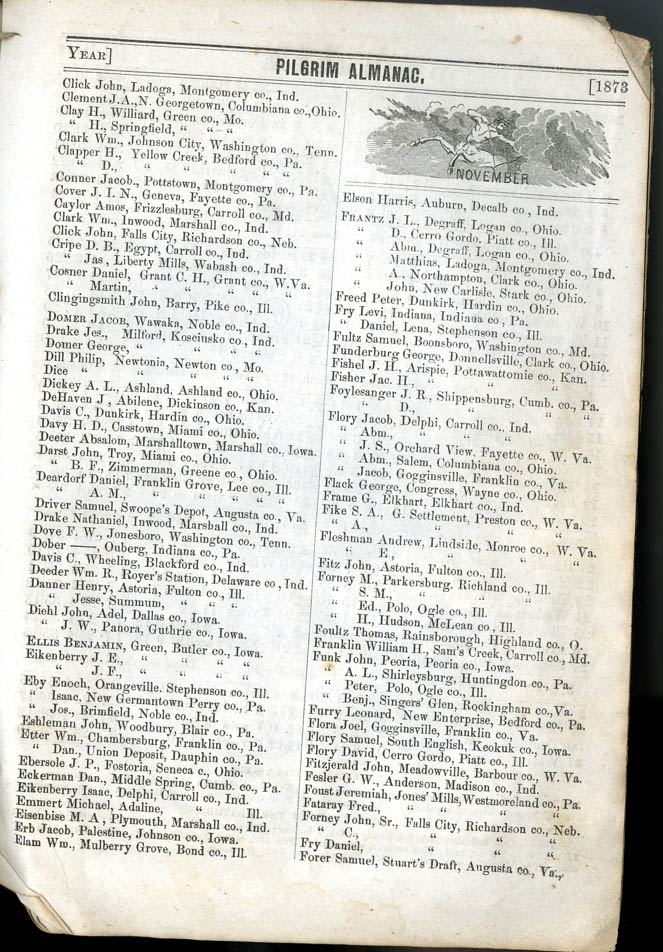 YEAR]
PILGRIM ALMANAC,
[1873
Click John, Ladoga, Montgomery co., Ind.
Clement J.A., N. Georgetown, Columbiana co., Ohio.
Clay H., Williard, Green co., Mo.
“ H., Springfield, “ “ “
Clark Wm., Johnson City, Washington co., Tenn.
Clapper H., Yellow Creek, Bedford co., Pa.
“ D., “ “ “ “ “
Conner Jacob., Pottstown, Montgomery co., Pa.
Cover J. I. N., Geneva, Fayette co., Pa.
Caylor Amos, Frizzlesburg, Carroll co., Md.
Clark Wm., Inwood, Marshall co., Ind.
Click John, Falls City, Richardson co., Neb.
Cripe D. B., Egypt, Carroll co., Ind.
“ Jas, Liberty Mills, Wabash co., Ind.
Cosner Daniel, Grant C. H., Grant co., W.Va.
“ Martin, “ “ “ “ “
Clingingsmith John, Barry, Pike co., Ill.
DOMER JACOB, Wawaka, Noble co., Ind.
Drake Jes., Milford, Kosciusko co., Ind.
Domer George, “ “ “ “
Dill Philip, Newtonia, Newton co., Mo.
Dice “ “ “ “ “
Dickey A. L., Ashland, Ashland co., Ohio.
DeHaven J, Abilene, Dickinson co., Kan.
Davis C., Dunkirk, Hardin co., Ohio.
Davy H. D., Casstown, Miami co., Ohio.
Deeter Absalom, Marshalltown, Marshall co., Iowa.
Darst John, Troy, Miami co., Ohio.
“ B. F., Zimmerman, Greene co., Ohio.
Deardorf Daniel, Franklin Grove, Lee co., Ill.
“ A. M., “ “ “ “ “
Driver Samuel, Swoope's Depot, Augusta co., Va.
Drake Nathaniel, Inwood, Marshall co., Ind.
Dove F. W., Jonesboro, Washington co., Tenn.
Dober ——, Ouberg, Indiana co., Pa.
Davis C., Wheeling, Blackford co., Ind.
Deeder Wm. R., Royer's Station, Delaware co, Ind.
Danner Henry, Astoria, Fulton co., Ill.
“ Jesse, Summum, “ “ “
Diehl John, Adel, Dallas co., Iowa.
“ J. W., Panora, Guthrie co., Iowa.
ELLIS BENJAMIN, Green, Butler co., Iowa.
Eikenberry J. E., “ “ “ “
“ J. F., “ “ “ “
Eby Enoch, Orangeville. Stephenson co., Ill.
“ Isaac, New Germantown Perry co., Pa.
“ Jos., Brimfield, Noble co., Ind.
Eshleman John, Woodbury, Blair co., Pa.
Etter Wm., Chambersburg, Franklin co., Pa.
“ Dan., Union Deposit, Dauphin co., Pa.
Ebersole J. P., Fostoria, Seneca c., Ohio.
Eckerman Dan., Middle Spring, Cumb. co., Pa.
Eikenberry Isaac, Delphi, Carroll co., Ind.
Emmert Michael, Adaline, “ Ill.
Eisenbise M. A, Plymouth, Marshall co., Ind.
Erb Jacob, Palestine, Johnson co., Iowa.
Elam Wm., Mulberry Grove, Bond co., Ill.
NOVEMBER
Elson Harris, Auburn, Decalb co., Ind.
FRANTZ J. L., Degraff, Logan co., Ohio.
“ D., Cerro Gordo, Piatt co., Ill.
“ Abm., Degraff, Logan co., Ohio.
“ Matthias, Ladoga, Montgomery co., Ind.
“ A., Northampton, Clark co., Ohio.
“ John, New Carlisle, Stark co., Ohio.
Freed Peter, Dunkirk, Hardin co., Ohio.
Fry Levi, Indiana, Indiana co., Pa.
“ Daniel, Lena, Stephenson co., Ill.
Fultz Samuel, Boonsboro, Washington co., Md.
Funderburg George, Donnellsville, Clark co., Ohio.
Fishel J. H., Arispie, Pottawattomie co., Kan.
Fisher Jac. H., “ “ “ “
Foylesanger J. R., Shippensburg, Cumb. co., Pa.
“ D., “ “ “ “
Flory Jacob, Delphi, Carroll co., Ind.
“ Abm., “ “ “ “
“ J. S., Orchard View, Fayette co., W. Va.
“ Abm., Salem, Columbiana co., Ohio.
“ Jacob, Gogginsville, Franklin co., Va.
Flack George, Congress, Wayne co., Ohio.
Frame G., Elkhart, Elkhart co., Ind.
Fike S. A., G. Settlement, Preston co., W. Va.
“ A., “ “ “ “ “
Fleshman Andrew, Lindside, Monroe co., W. Va.
“ E., “ “ “ “
Fitz John, Astoria, Fulton co., Ill.
Forney M., Parkersburg. Richland co., Ill.
“ S. M., “ “ “
“ Ed., Polo, Ogle co., Ill.
“ H., Hudson, McLean co., Ill.
Foultz Thomas, Rainsborough, Highland co., O.
Franklin William H., Sam's Creek, Carroll co., Md.
Funk John, Peoria, Peoria co., Iowa.
“ A. L., Shirleysburg, Huntingdon co., Pa.
“ Peter, Polo, Ogle co., Ill.
“ Benj., Singers' Glen, Rockingham co., Va.
Furry Leonard, New Enterprise, Bedford co., Pa.
Flora Joel, Gogginsville, Franklin co., Va.
Flory Samuel, South English, Keokuk co., Iowa.
Flory David, Cerro Gordo, Piatt co., Ill.
Fitzjerald John, Meadowville, Barbour co., W. Va.
Fesler G. W., Anderson, Madison co., Ind.
Foust Jeremiah, Jones' Mills, Westmoreland co., Pa.
Fataray Fred., “ “ “ “
Forney John, Sr., Falls City, Richardson co., Neb.
“ C., “ “ “ “
Fry Daniel, “ “ “
Forer Samuel, Stuart's Draft, Augusta co., Va.,